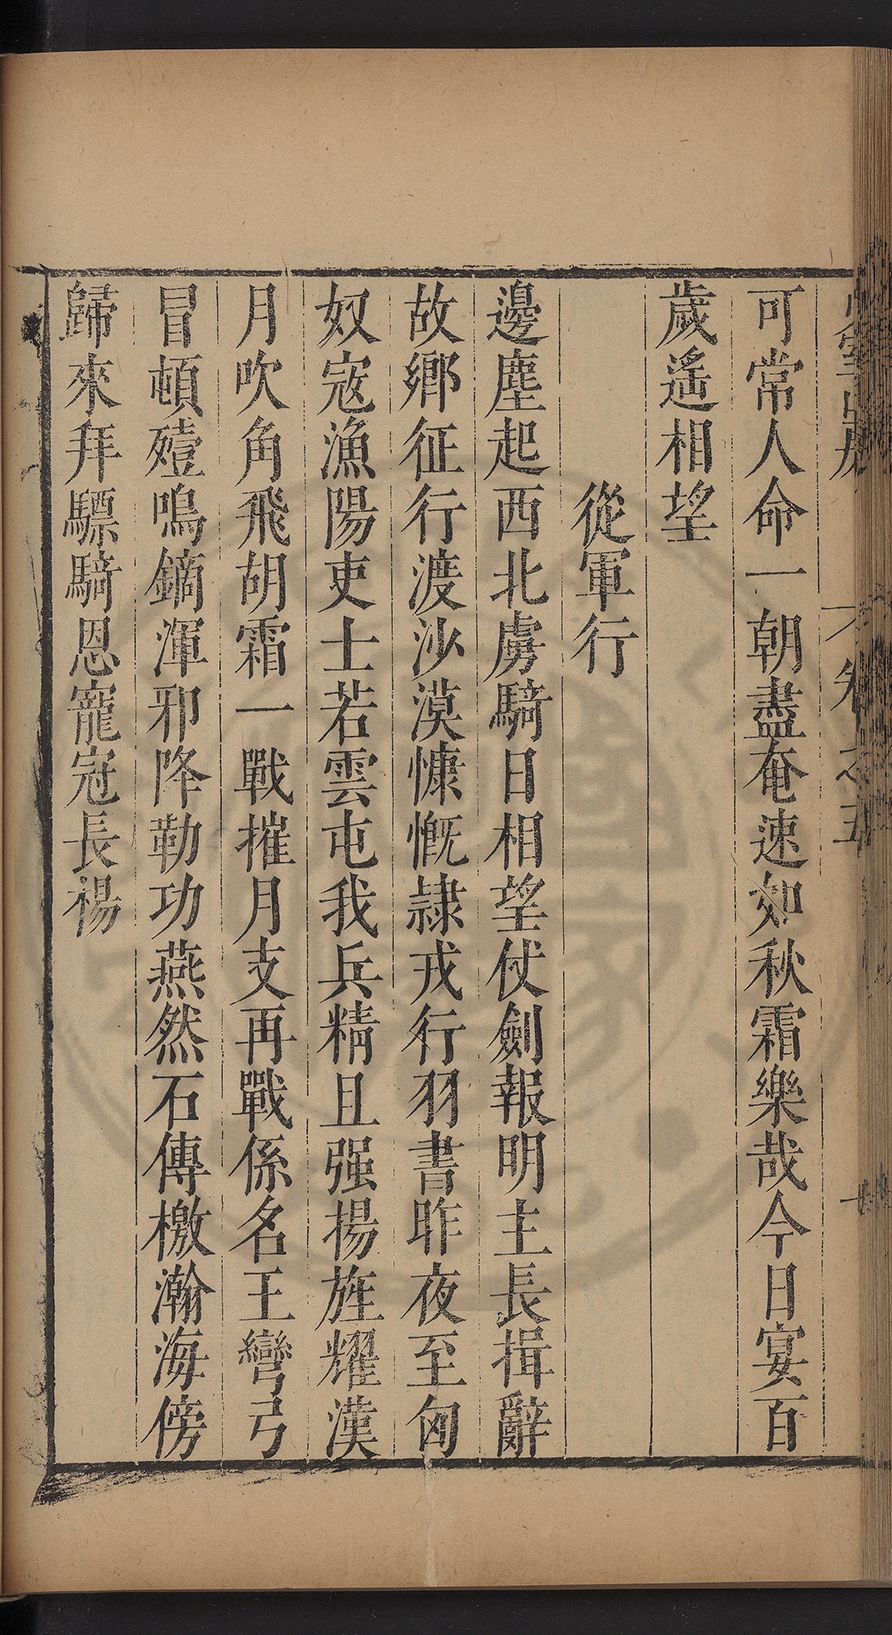 卷之五
可常人命一朝盡奄速如秋霜樂哉今日宴百
歲遙相望
從軍行
邊塵起西北虜騎日相望仗劍報明主長揖辭
故鄉征行渡沙漠慷慨隷戎行羽書昨夜至匈
奴寇漁陽吏士若雲屯我兵精且强揚旌耀漢
月吹角飛胡霜一戰摧月支再戰係名王彎弓
冒頓殪鳴鏑渾邪降勒功燕然石傳檄瀚海傍
歸來拜驃騎恩寵冠長楊